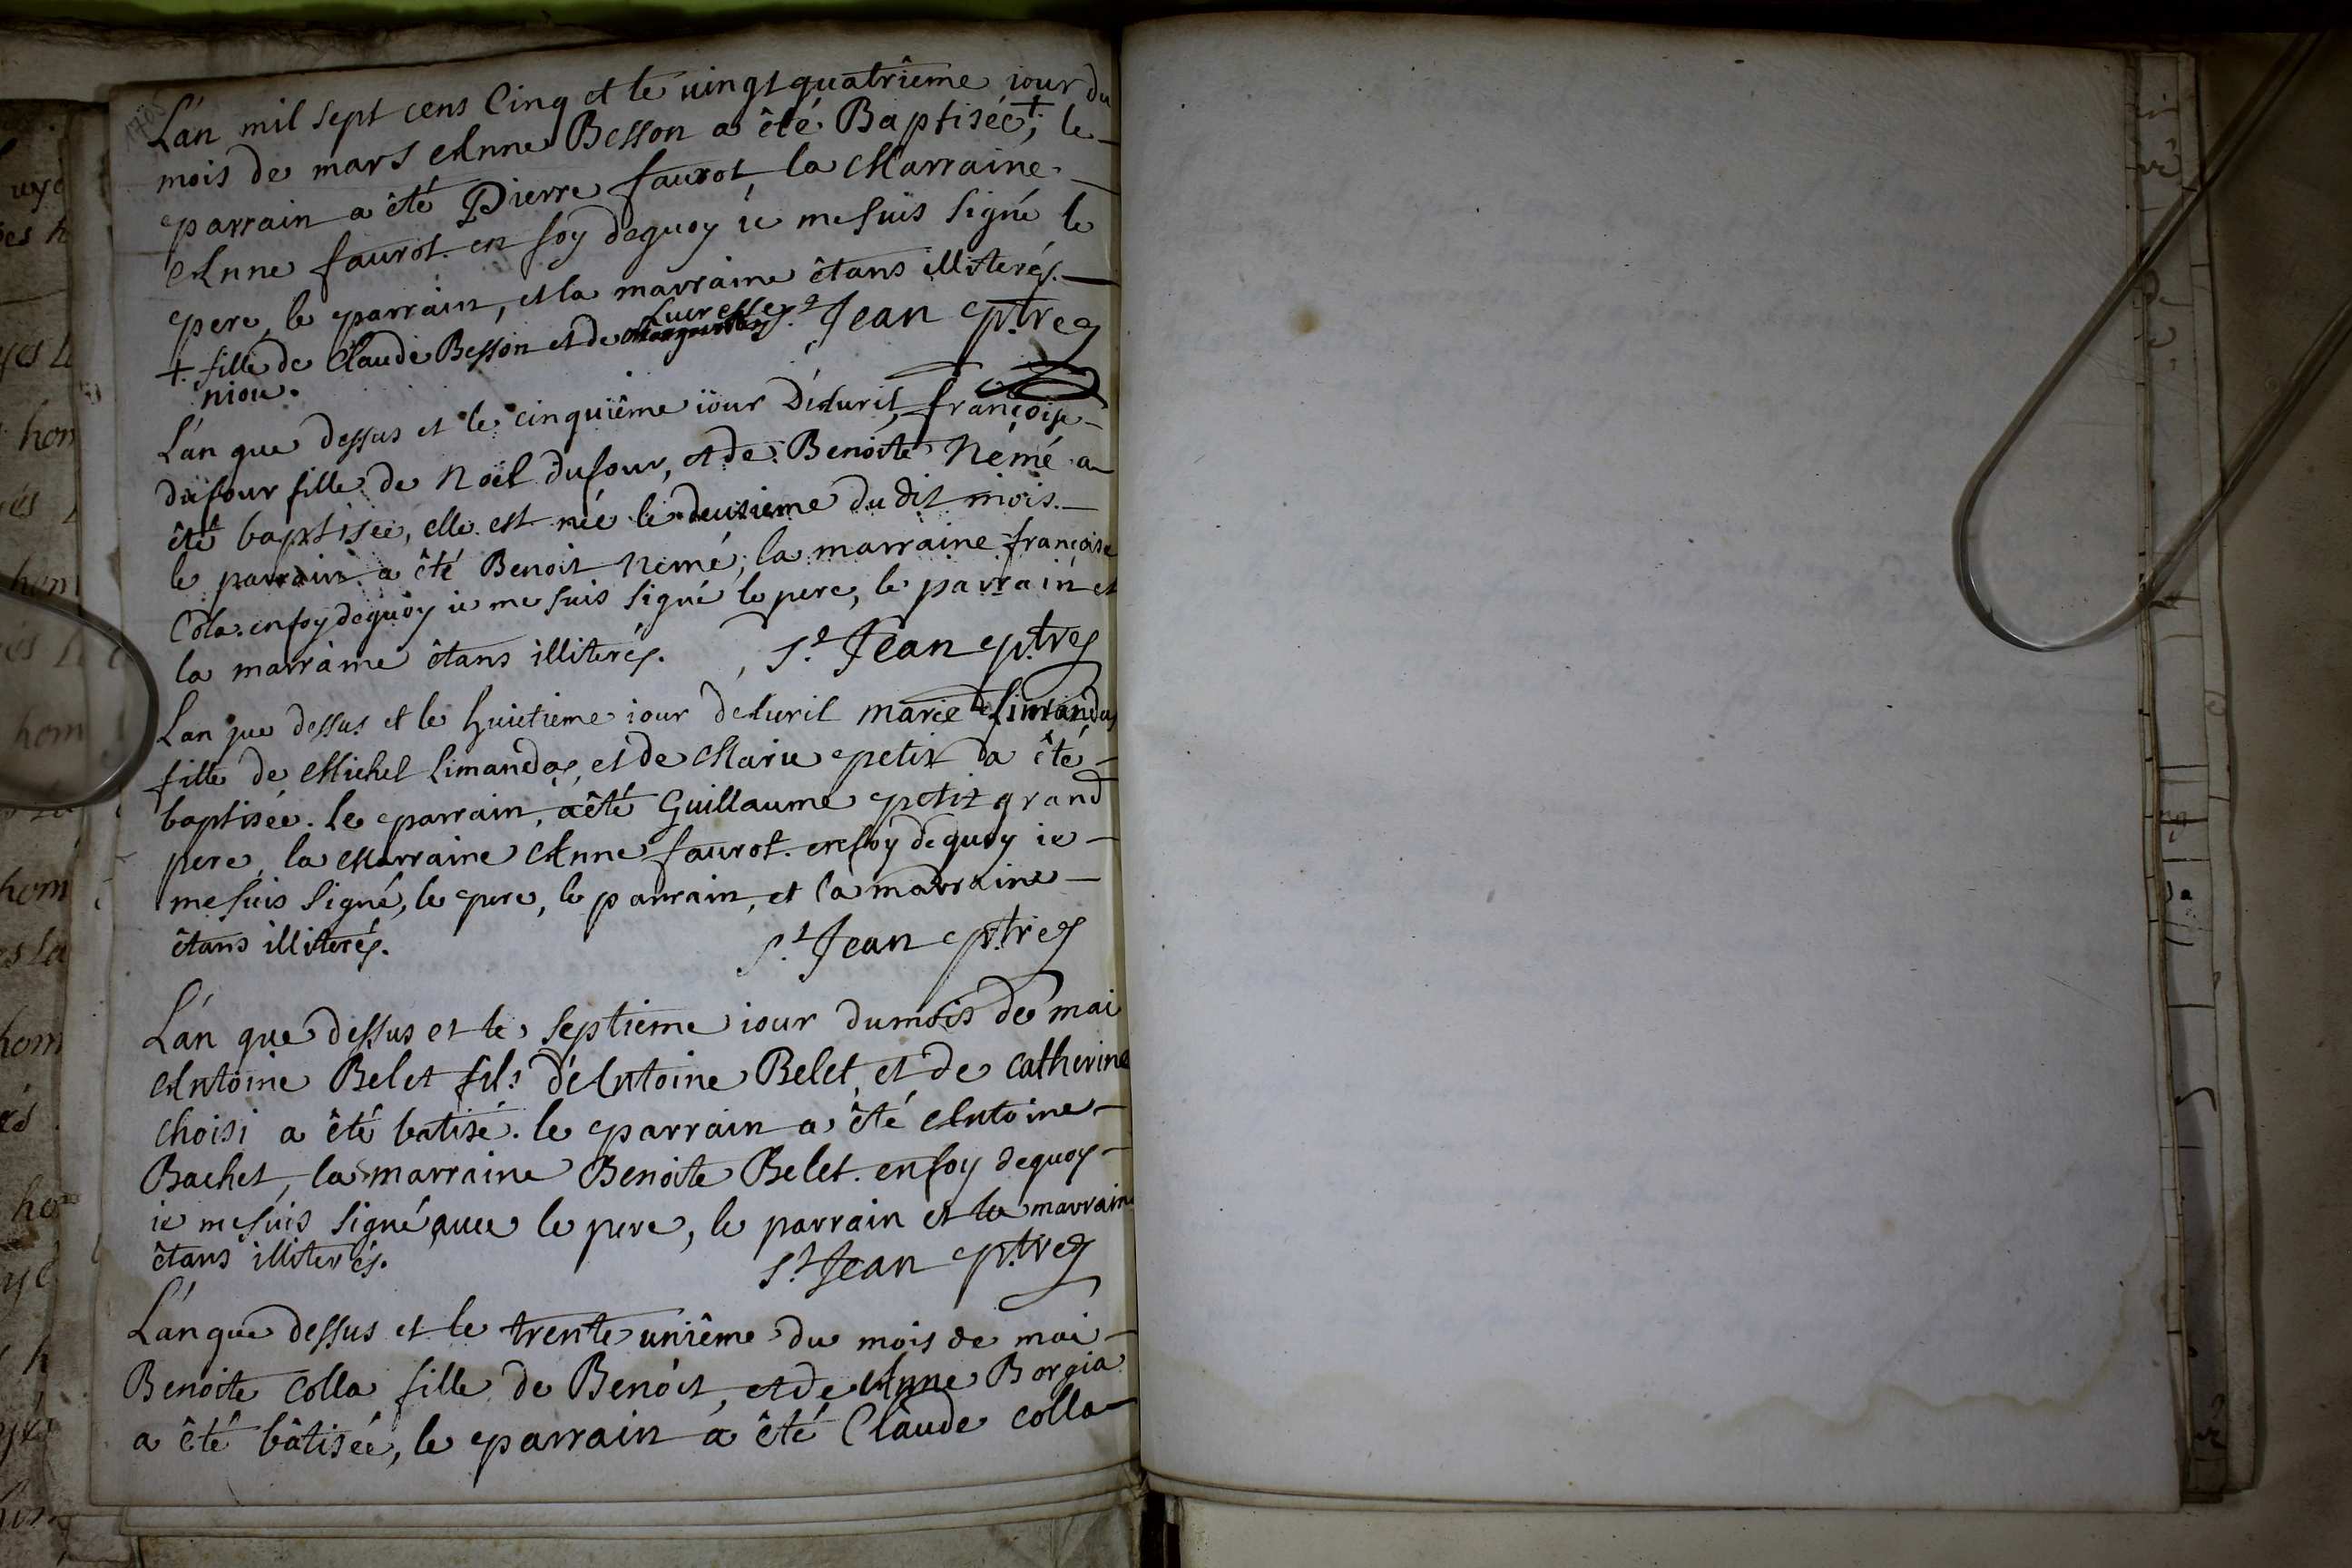 1705
L'án mil sept cens Cinq et le vingt quatriême iour du
mois de mars Anne Besson a êté Baptiséé +; le
parrain a êté Pierre faurot, la Marraine
Anne faurot. en foy dequoy ie me suis signé le
pere, le parrain, et la marraine êtans illiterés.
Lucresse
+ fille de Claude Besson et de St Jean ptre
niou.
L'án que dessus et le cinquiême iour D'Auril, françoise
dufour fille de Noël dufour, et de Benoite Némé a
êté baptisée, elle est née le deusieme du dit mois.
le parrain a êté Benoit Nemé; la marraine françoise
Cola. en foy dequoy ie me suis signé le pere, le parrain et
la marraine êtans illiterés. St Jean ptre
L'an que dessus et le huictieme iour d'Auril marie Limandas
fille de Michel Limandas, et de Marie petit a êté
baptisée. le parrain, a êté Guillaume petit grand
pere, la Marraine Anne faurot. en foy dequoy ie
me suis signé, le pere, le parrain, et la marraine
êtans illiterés. St Jean ptre
L'án que dessus et le septieme iour du mois de mai
Antoine Belet fils d'Antoine Belet, et de Catherine
Choisi a êté batisé. le parrain a êté Antoine
Bachet, la marraine Benoite Belet. en foy dequoy
ie me suis signé auec le pere, le parrain et la marraine
êtans illiterés. St Jean ptre
L'án que dessus et le trente uniême du mois de mai
Benoite Colla fille de Benoit, et de Anne Borgia
a êté bâtiséé, le parrain a êté Claude Colla